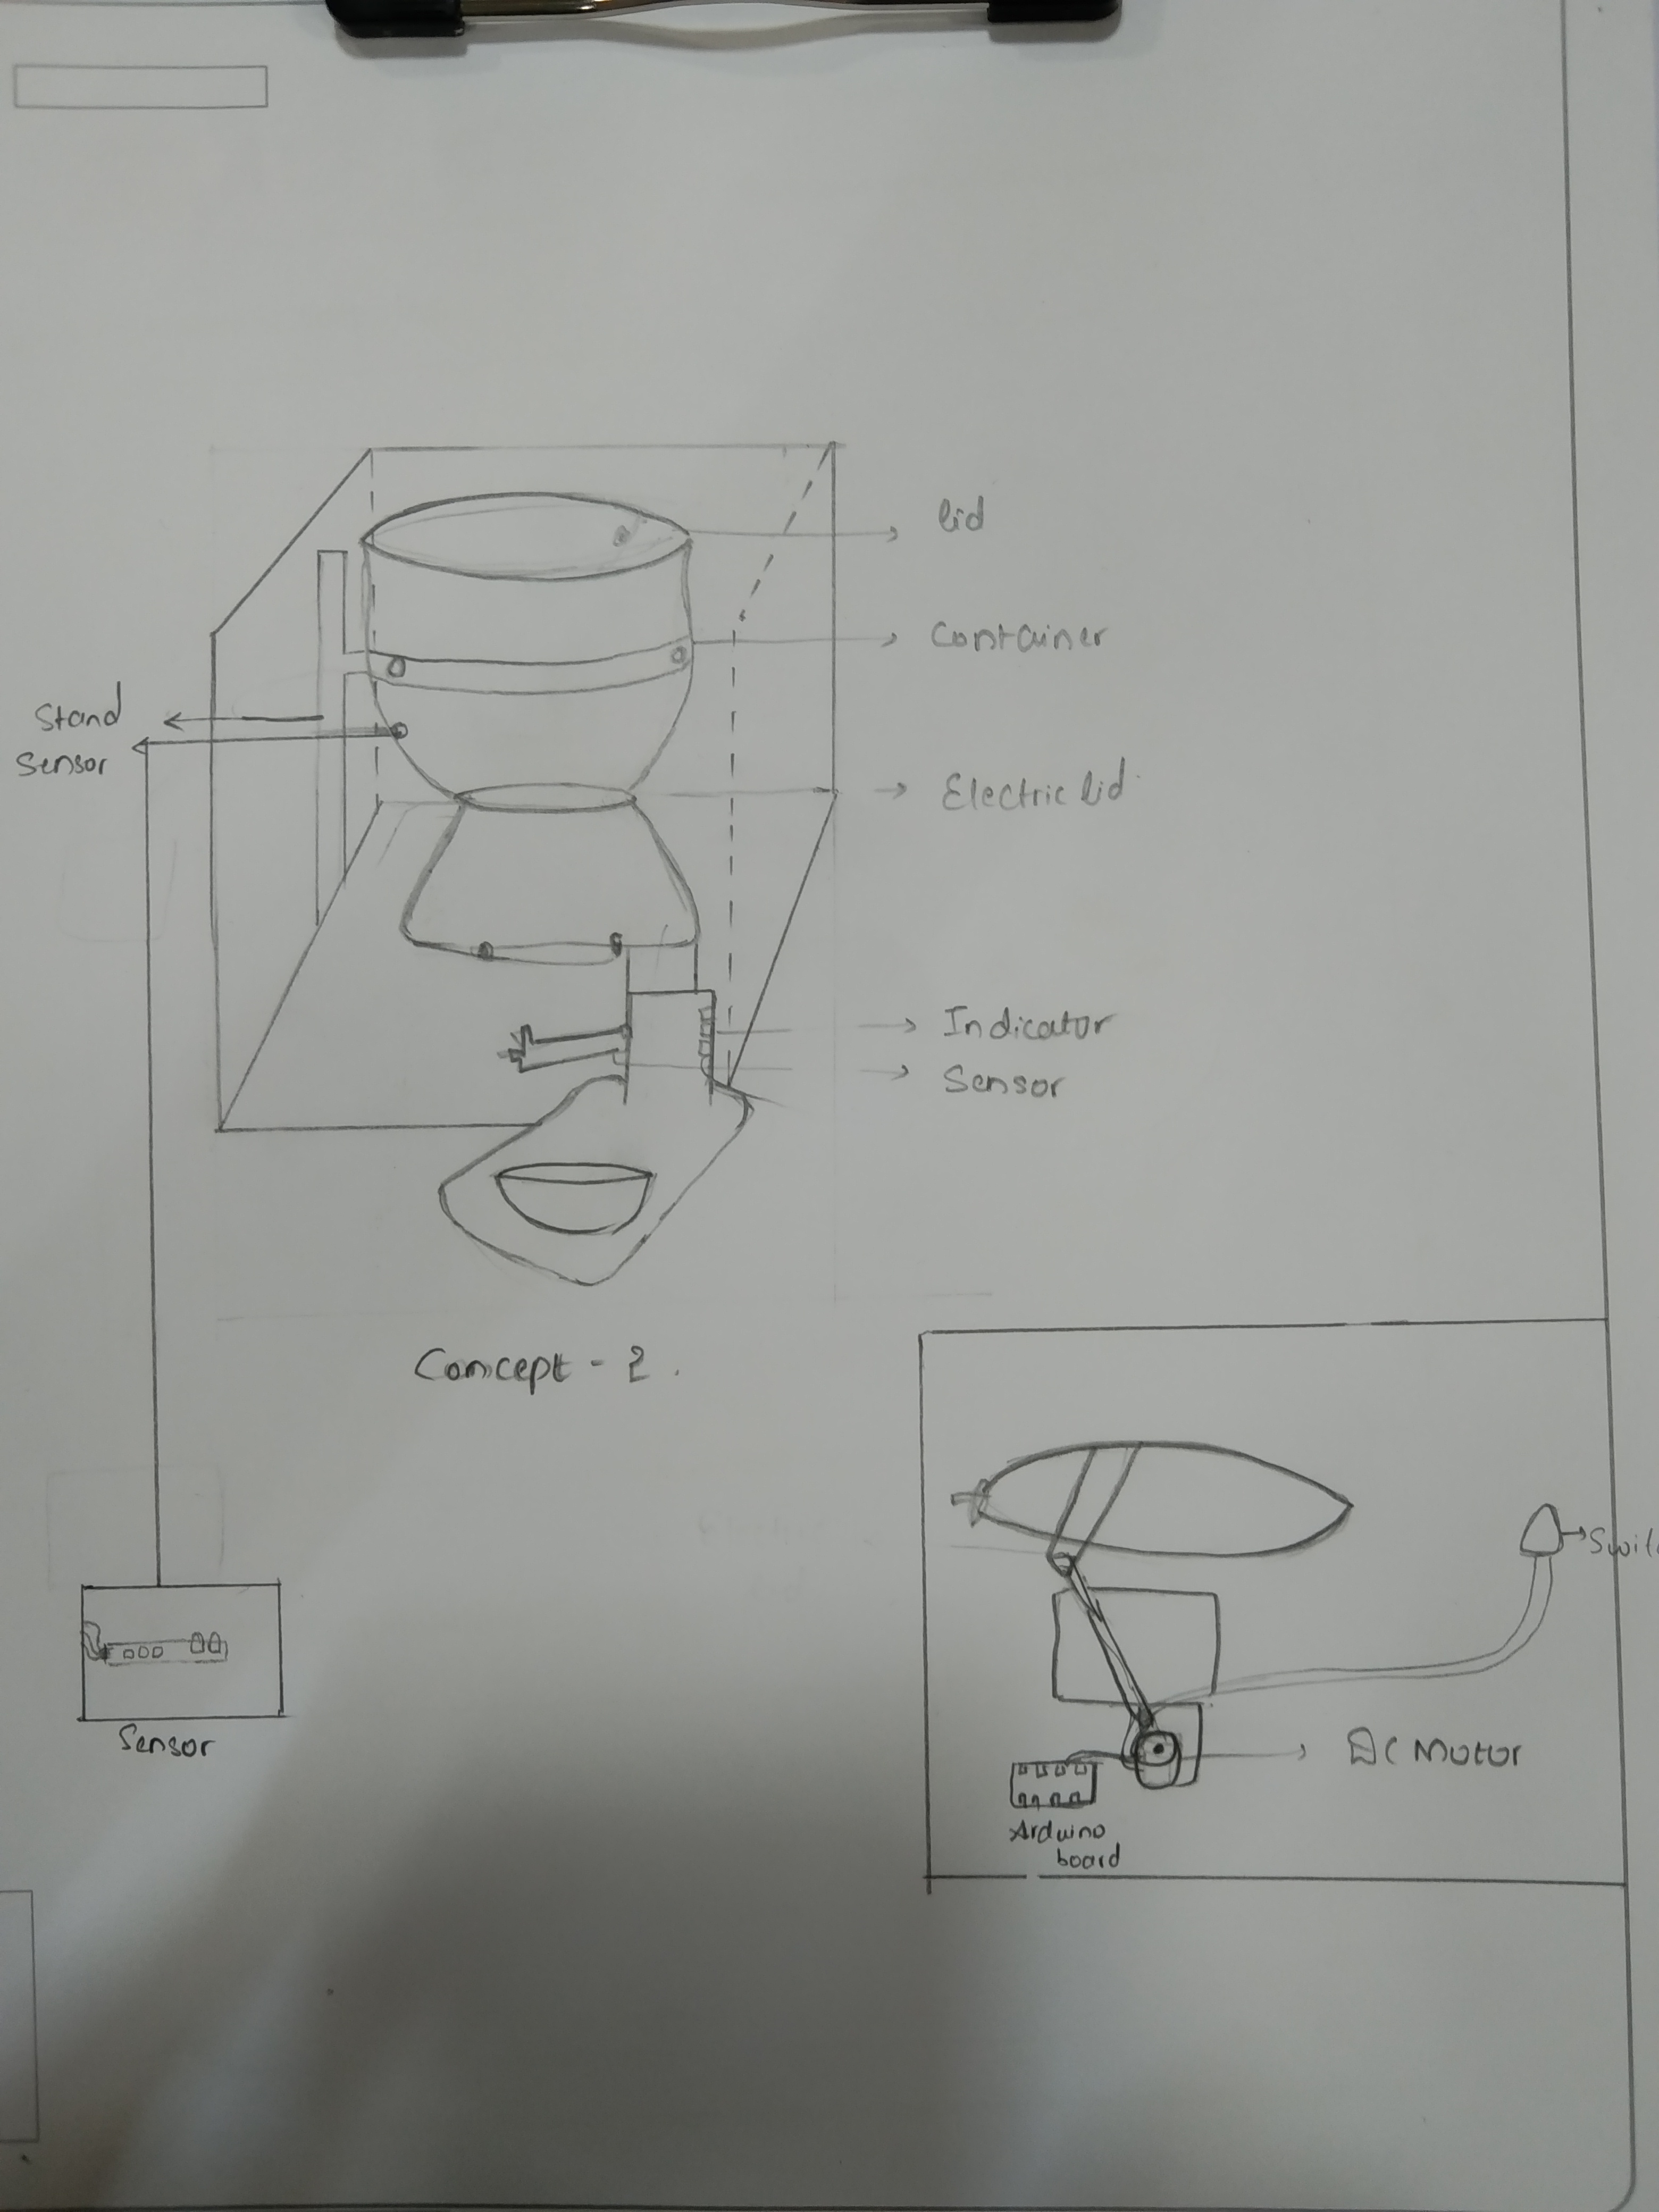 lid
Container
Stand
Sensor
Electric lid
Indicator
Sensor
Concept - 2.
Sensor
DC Motor
Arduino
board